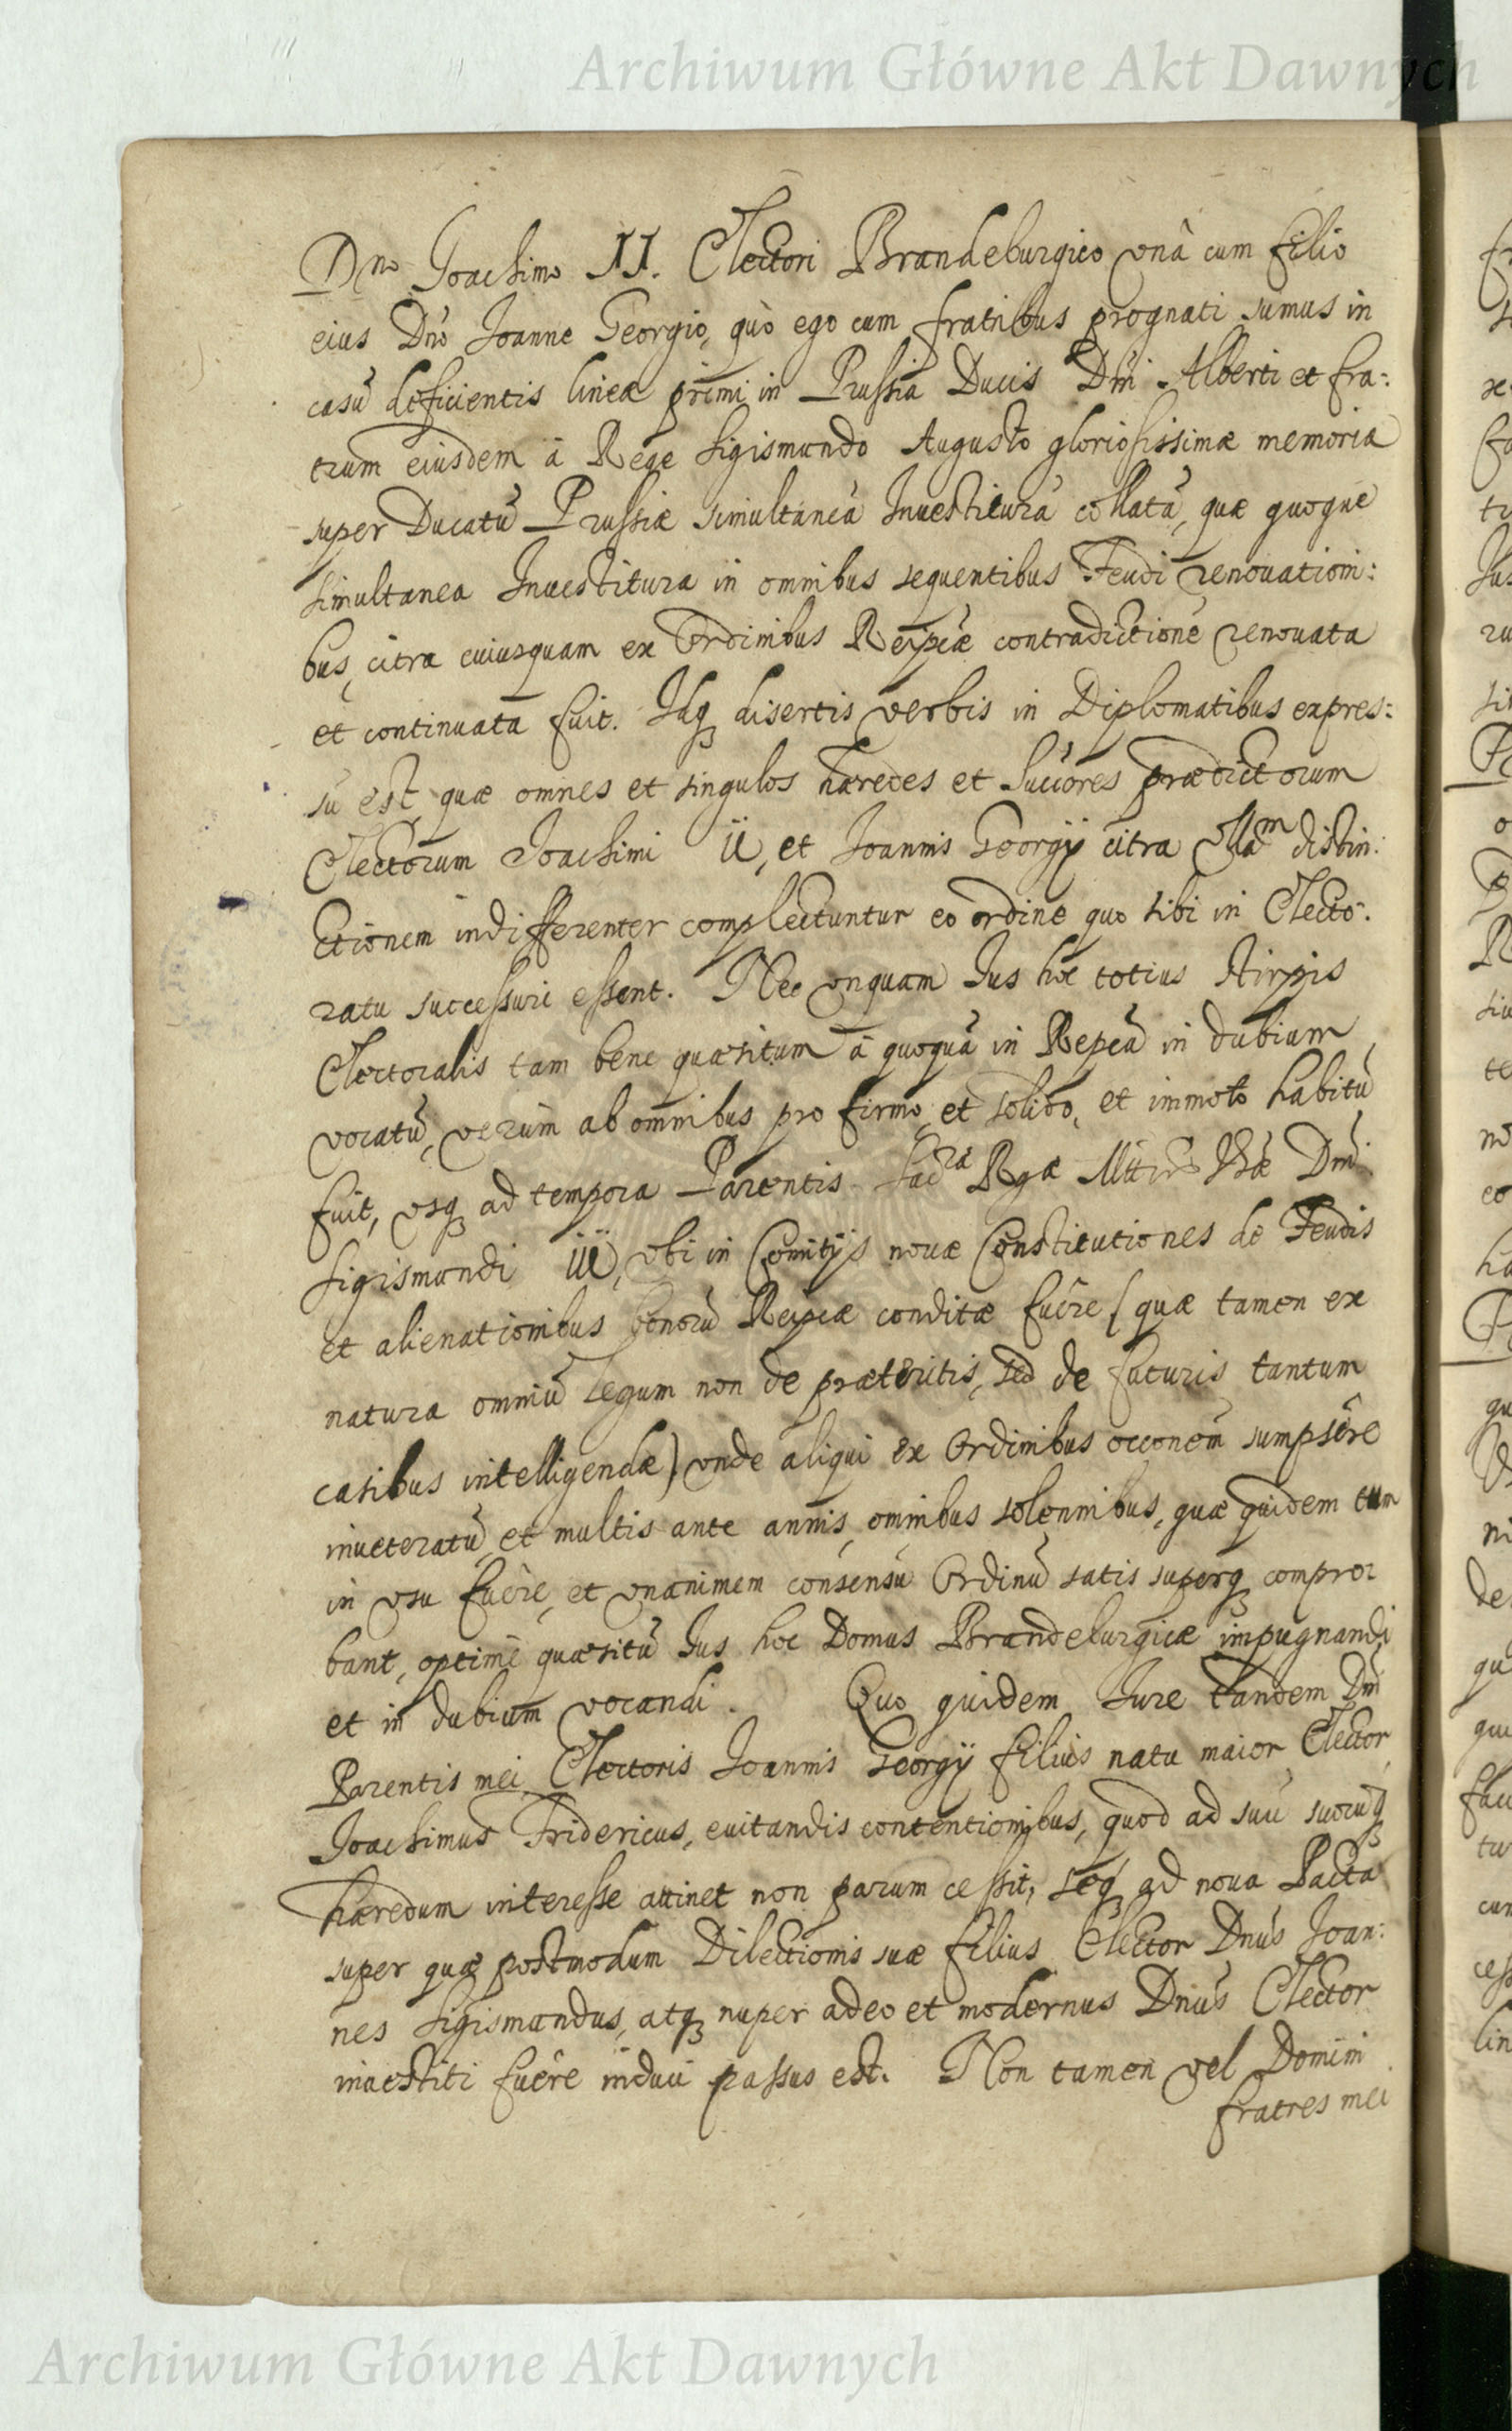 Archiwum Główne Akt Dawnych
Dno Joachimo II. Electori Brandeburgico vnà cum filio
eius Dno Joanne Georgio, quò ego cum fratribus prognati sumus in
casū deficientis lineæ primi in Prussia Ducis Dni Alberti et fra:
trum eiusdem à Rege Sigismundo Augusto gloriosissimæ memoriæ
super Ducatū Prussiæ simultaneā Inuestiturā collatā, quæ quoque
simultanea Inuestitura in omnibus sequentibus Feudi renouationi:
bus, citra cuiusquam ex Ordinibus Reipcæ contradictionē renouata
et continuata fuit. Idq disertis verbis in Diplomatibus expres:
sū est, quæ omnes et singulos hæredes et Succōres prædictorum
Electorum Joachimi ii, et Joannis Georgij citra ullam distin:
ctionem indifferenter complectuntur eo ordine quo sibi in Electo:
ratu successuri essent. Nec vnquam Jus hoc totius stirpis
Electoralis tam bene quæsitum à quoquā in Repcā in dubium
vocatū, verùm ab omnibus pro firmo, et solido, et immoto habitū
fuit, vsq ad tempora Parentis Sacræ Rgæ Mttis Vræ Dni
Sigismundi iii, vbi in Comitijs nouæ Constitutiones de Feudis
et alienationibus bonorū Reipcæ conditæ fuêre (quæ tamen ex
natura omniū legum non de præteritis, sed de futuris tantum
casibus intelligendæ) vnde aliqui ex Ordinibus occonem sumpsêre
inueteratū, et multis ante annis, omnibus solennibus, quæ quidem tum
in vsu fuêre, et vnanimem consensū Ordinū satis superq compro:
bant, optimè quæsitū Jus hoc Domus Brandeburgicæ impugnandi
et in dubium vocandi. Quo quidem Jure tandem Dni
Parentis mei Electoris Joannis Georgij filius natu maior Elector
Joachimus Fridericus, euitandis contentionibus, quod ad suū suorūq
hæredum interesse attinet non parum cessit, seq ad noua Pacta
super quæ postmodum Dilectionis suæ filius Elector Dnus Joan:
nes Sigismundus, atq nuper adeo et modernus Dnus Elector
inuestiti fuêre induci passus est. Non tamen vel Domini
fratres mei
Archiwum Główne Akt Dawnych